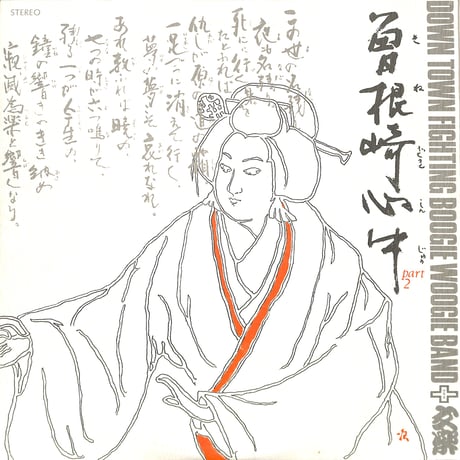 STEREO
DOWN TOWN FIGHTING BOOGIE WOOGIE BAND + 文楽
曽根崎心中
そねざきしんじゅう
part
2
この世の名残
夜も名残
死に行く身を
たとふれば
仇しが原の道の霜
一足づつに消えて行く
夢の夢こそ哀れなれ。
あれ数れば暁の
七つの時が六つ鳴りて
残る一つが今生の
鐘の響きのきき納め
寂滅為楽と響くなり。